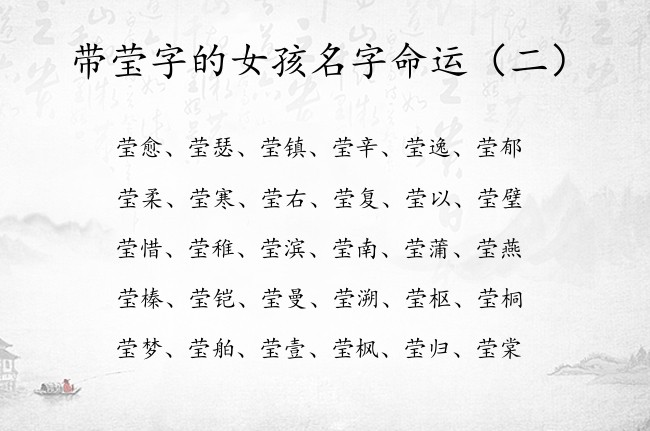 带莹字的女孩名字命运（二）
莹愈、莹瑟、莹镇、莹辛、莹逸、莹郁
莹柔、莹寒、莹右、莹复、莹以、莹璧
莹惜、莹稚、莹滨、莹南、莹蒲、莹燕
莹榛、莹铠、莹曼、莹溯、莹枢、莹桐
莹梦、莹舶、莹壹、莹枫、莹归、莹棠